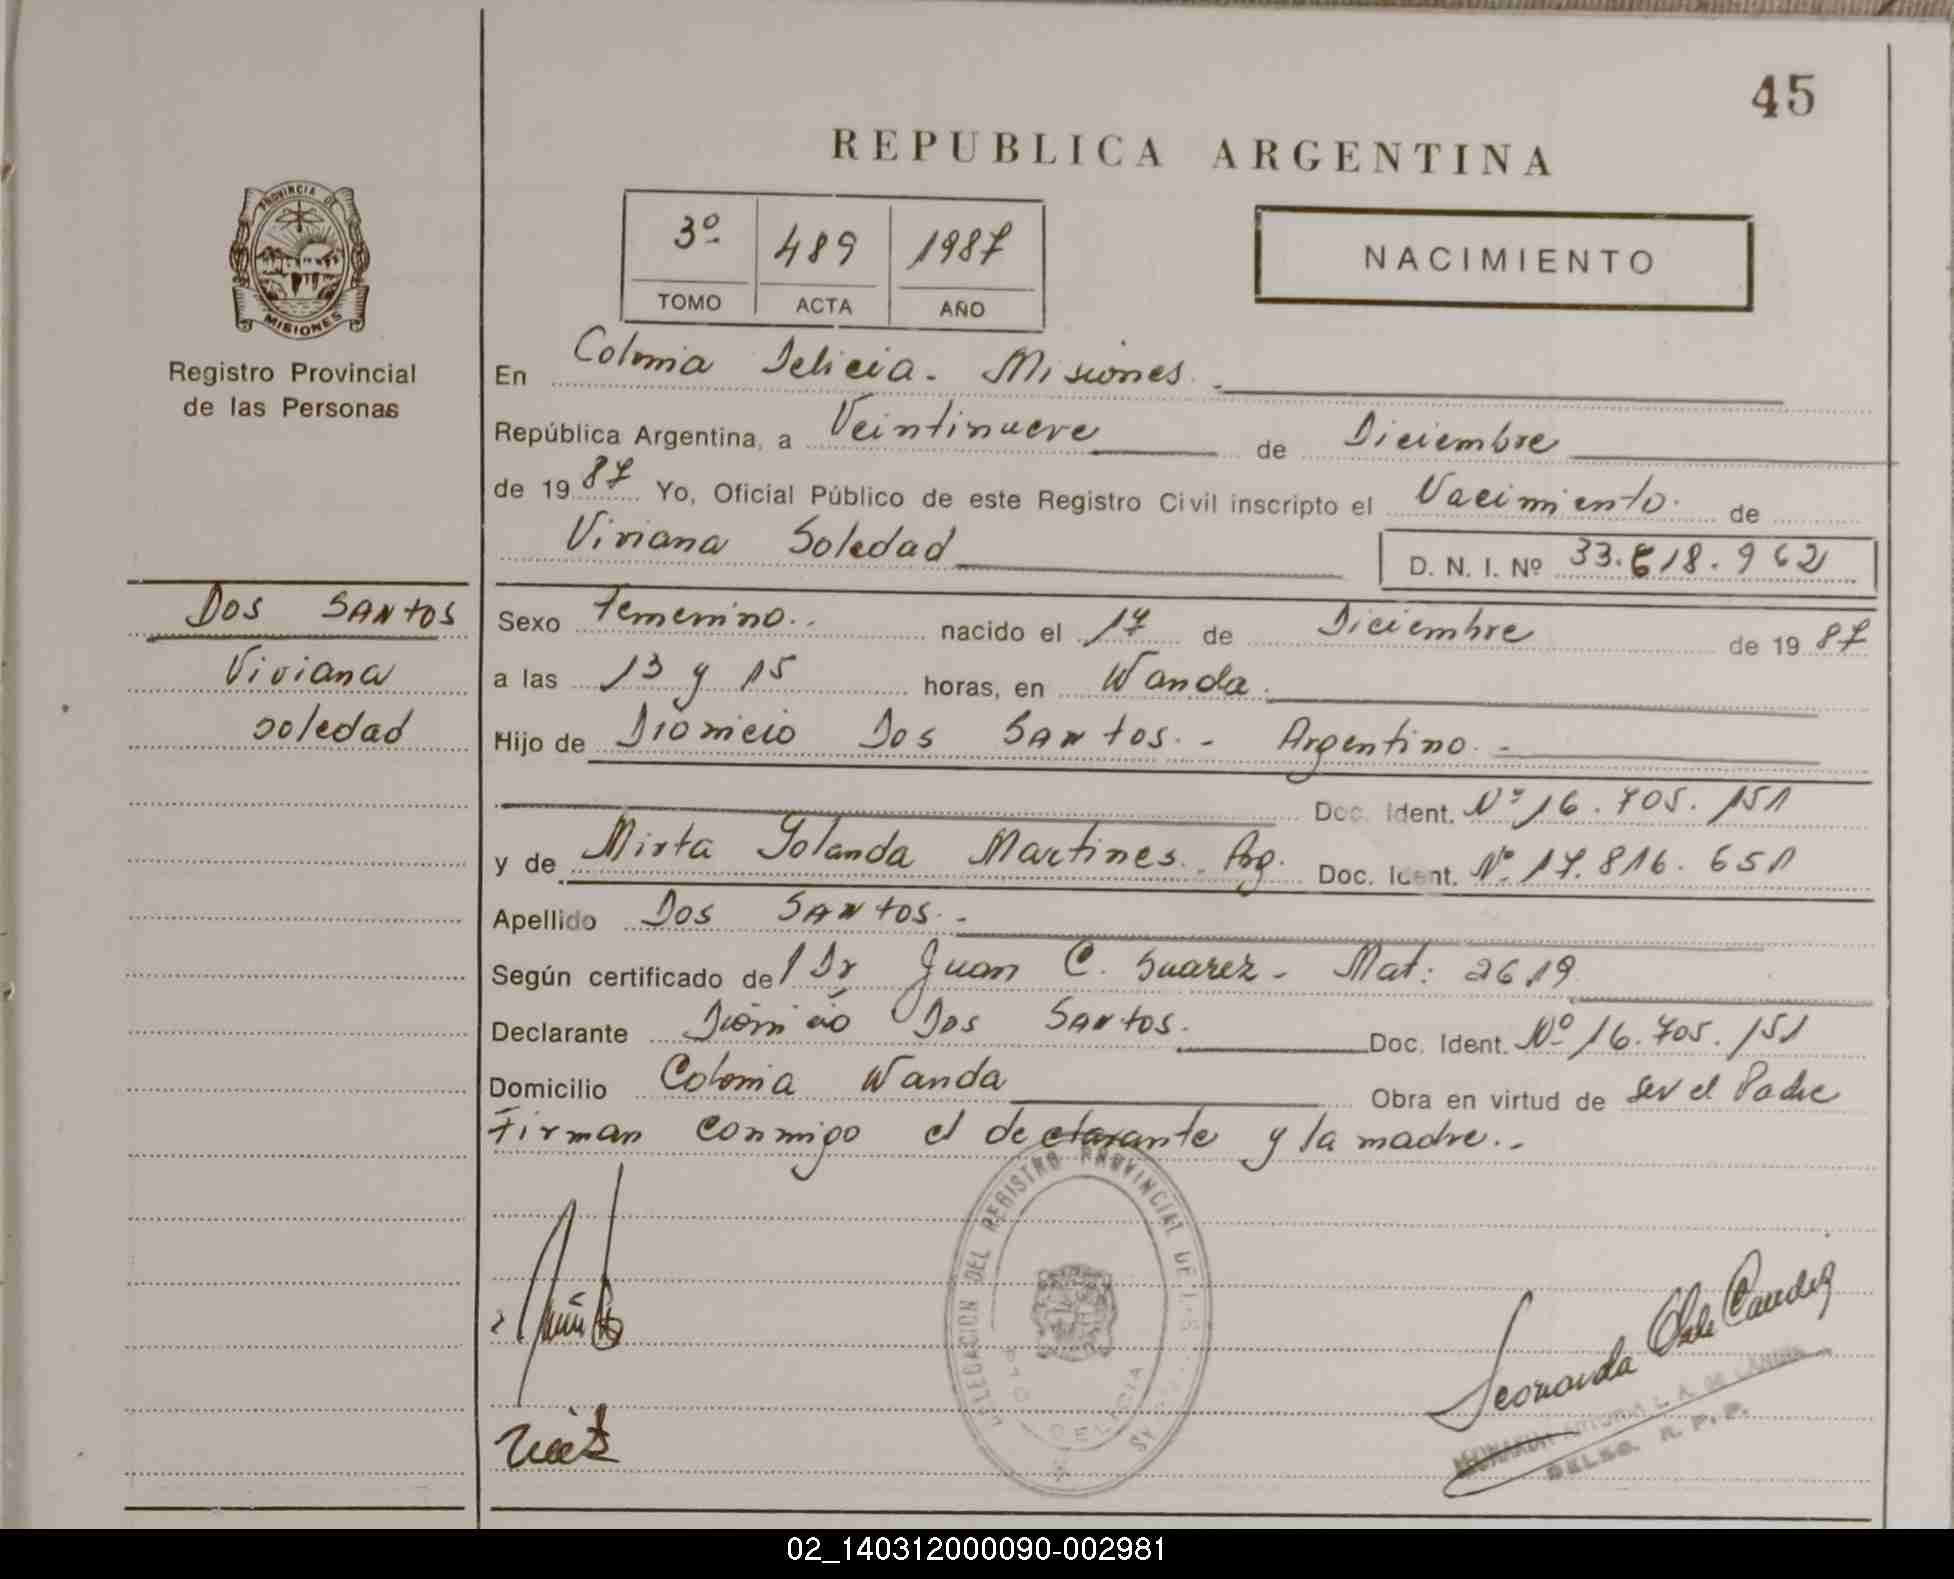 45
REPUBLICA ARGENTINA
PROVINCIA DE
MISIONES
Registro Provincial
de las Personas
3º 489 1987
TOMO ACTA AÑO
NACIMIENTO
En Colonia Delicia - Misiones.
República Argentina, a Veintinueve de Diciembre
de 1987 Yo, Oficial Público de este Registro Civil inscripto el Nacimiento de
Viviana Soledad D. N. I. Nº 33.618.962
DOS SANTOS
Viviana
Soledad
Sexo Femenino.. nacido el 17 de Diciembre de 1987
a las 13 y 15 horas, en Wanda.
Hijo de Dionicio Dos SANtos. - Argentino. -
Doc. Ident. Nº 16.705.151
y de Mirta Yolanda Martines. Arg. Doc. Ident. Nº 17.816.651
Apellido Dos SANtos. -
Según certificado del Dr Juan C. Suarez - Mat: 2619
Declarante Dionicio Dos SANtos. Doc. Ident. Nº 16.705.151
Domicilio Colonia Wanda Obra en virtud de ser el Padre
Firman conmigo el declarante y la madre. -
DELEGACION DEL REGISTRO PROVINCIAL DE LAS
DELICIA
Leonarda
DELEG. R. P. P.
02_140312000090-002981